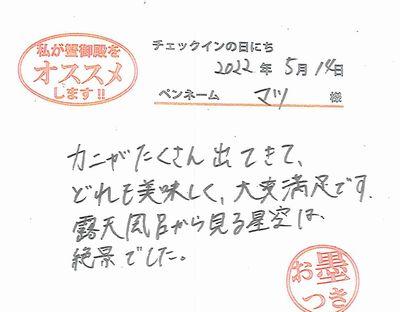 私が碧御殿を
オススメ
します!!
チェックインの日にち
2022年5月14日
ペンネーム マツ 様
カニがたくさん出てきて、
どれも美味しく、大変満足です.
露天風呂から見る星空は、
絶景でした。
お墨
つき